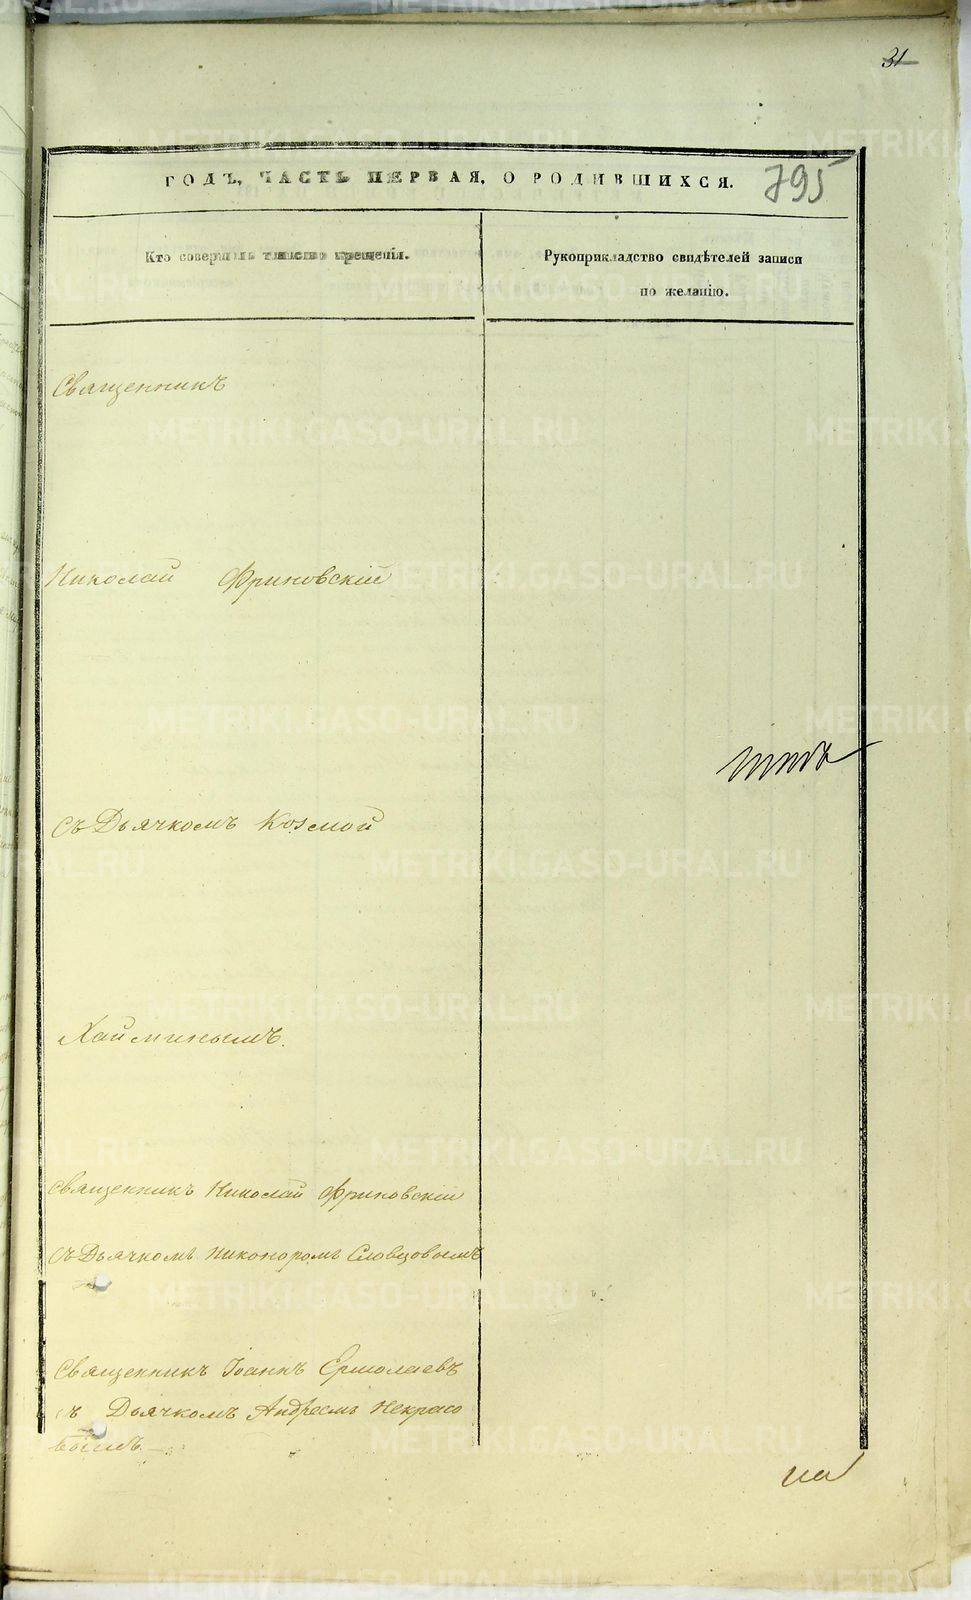 31
ГОДЪ, ЧАСТЬ ПЕРВАЯ, О РОДИВШИХСЯ.
795
Кто совершилъ таинство крещенія.
Рукоприкладство свидѣтелей записи
по желанію.
Священникъ
Николай Фриновскій
съ Дьячкомъ Козмой
Хайминымъ.
Священникъ Николай Фриновскій
съ Дьячкомъ Никоноромъ Словцовымъ
Священникъ Іоаннъ Ермолаевъ
съ Дьячкомъ Андреемъ Некрасо
вымъ.
METRIKI.GASO-URAL.RU